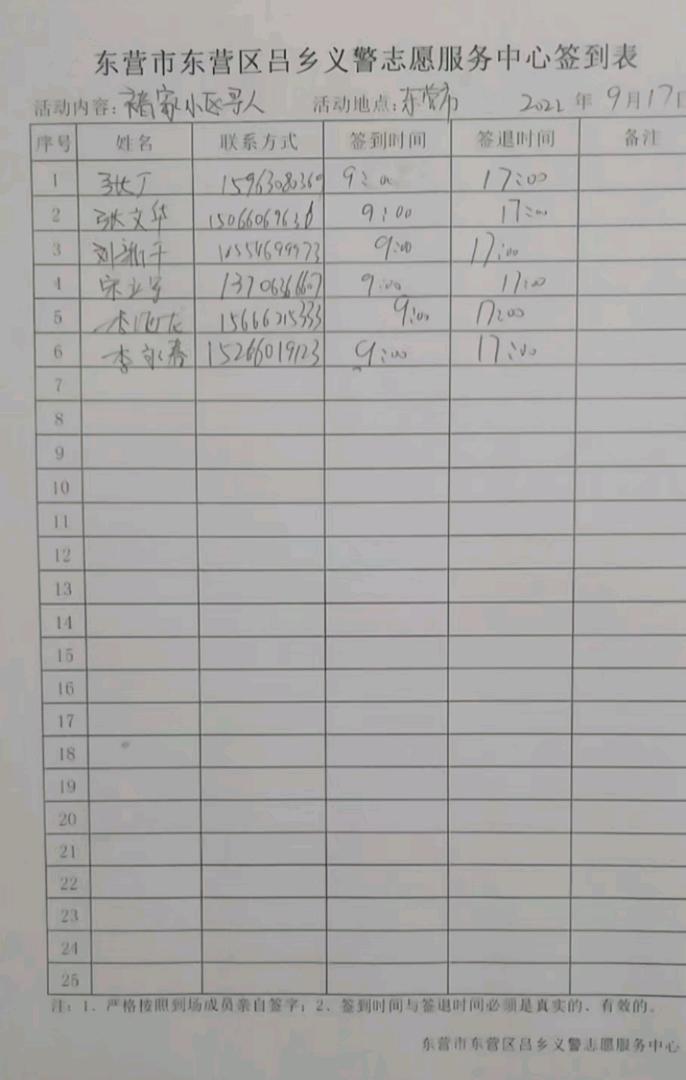 东营市东营区吕乡义警志愿服务中心签到表
活动内容：褚家小区寻人 活动地点：东营市 2022 年 9月17日
序号 姓名 联系方式 签到时间 签退时间 备注
1 张丁 15963080369 9:00 17:00
2 张文华 15066069636 9:00 17:00
3 9:00 17:00
4 9:00 17:00
5 15666215333 9:00 17:00
6 李永春 15266019123 9:00 17:00
7
8
9
10
11
12
13
14
15
16
17
18
19
20
21
22
23
24
25
注：1、严格按照到场成员亲自签字；2、签到时间与签退时间必须是真实的、有效的。
东营市东营区吕乡义警志愿服务中心